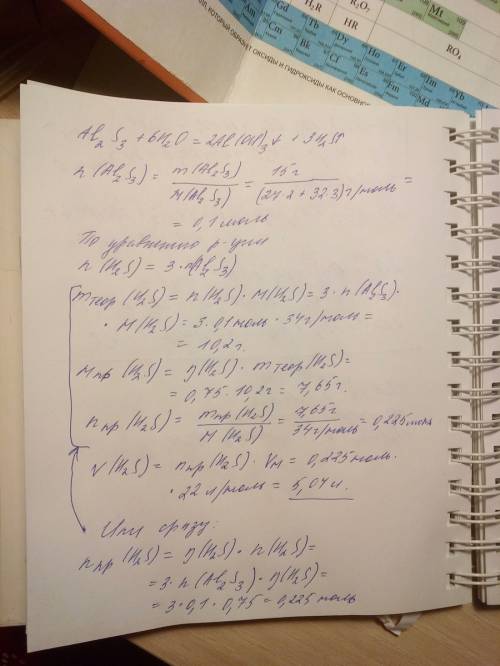 H₂R R₂O₇
HR RO₄
Mt
Gd Tb Dy Ho Er
Cm Bk Cf Es Fm Md
КОТОРЫЙ ОБРАЗУЕТ ОКСИДЫ И ГИДРОКСИДЫ КАК ОСНОВНО
Al₂S₃ + 6H₂O = 2Al(OH)₃↓ + 3H₂S↑
n(Al₂S₃) = m(Al₂S₃)/M(Al₂S₃) = 15г/(27·2+32·3)г/моль =
= 0,1 моль
По уравнению р-ции
n(H₂S) = 3·n(Al₂S₃)
mтеор(H₂S) = n(H₂S)·M(H₂S) = 3·n(Al₂S₃)·
·M(H₂S) = 3·0,1моль·34г/моль =
= 10,2г.
mпр(H₂S) = η(H₂S)·mтеор(H₂S) =
= 0,75·10,2г = 7,65г.
nпр(H₂S) = mпр(H₂S)/M(H₂S) = 7,65г/34г/моль = 0,225моль
V(H₂S) = nпр(H₂S)·Vм = 0,225моль·
·22 л/моль = 5,04л.
Или сразу:
nпр(H₂S) = η(H₂S)·n(H₂S) =
= 3·n(Al₂S₃)·η(H₂S) =
= 3·0,1·0,75 = 0,225 моль